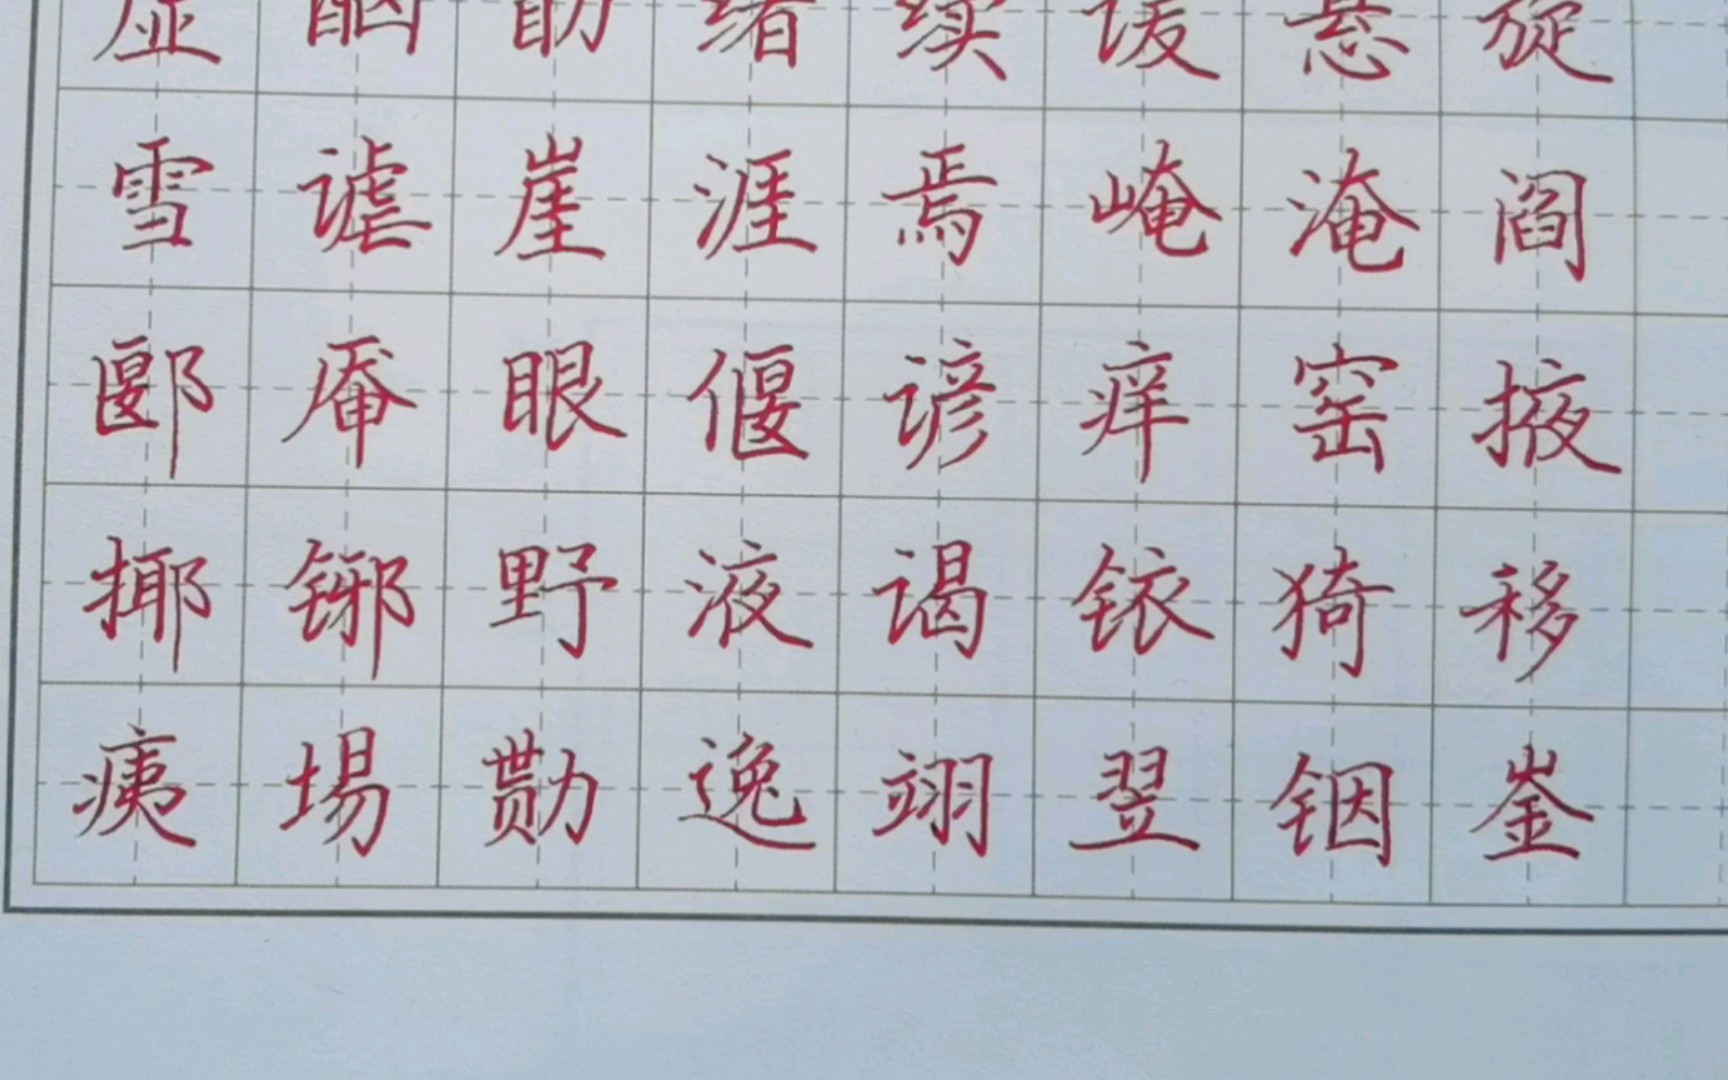 虚 酗 勖 绪 续 谖 悬 旋
雪 谑 崖 涯 焉 崦 淹 阎
郾 厣 眼 偃 谚 痒 窑 掖
揶 铘 野 液 谒 铱 猗 移
痍 埸 勚 逸 翊 翌 铟 崟